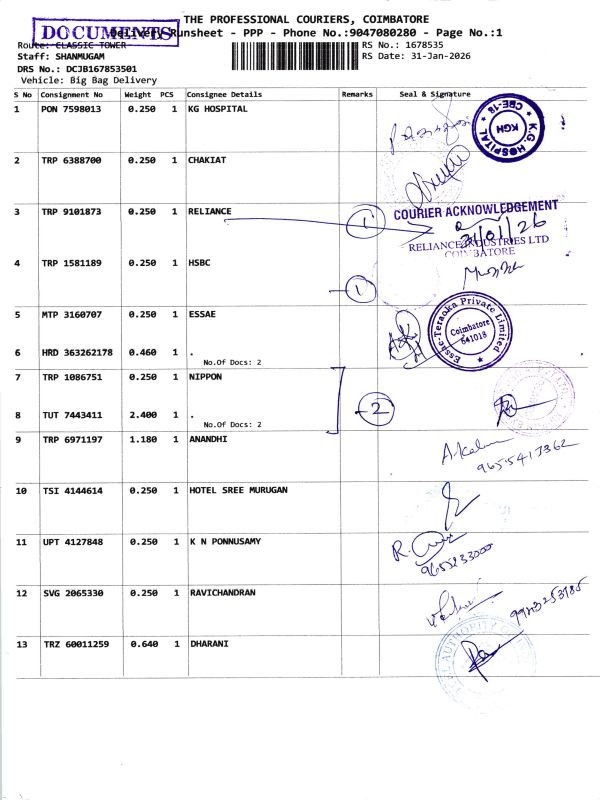 THE PROFESSIONAL COURIERS, COIMBATORE
DOCUMENTS
Delivery Runsheet - PPP - Phone No.:9047080280 - Page No.:1
Route: CLASSIC TOWER
RS No.: 1678535
Staff: SHANMUGAM
RS Date: 31-Jan-2026
DRS No.: DCJB167853501
Vehicle: Big Bag Delivery
S No Consignment No Weight PCS Consignee Details Remarks Seal & Signature
1 PON 7598013 0.250 1 KG HOSPITAL
K.G. HOSPITAL CBE-18 KGH
2 TRP 6388700 0.250 1 CHAKIAT
3 TRP 9101873 0.250 1 RELIANCE 1
COURIER ACKNOWLEDGEMENT
31/01/26
RELIANCE INDUSTRIES LTD
COIMBATORE
4 TRP 1581189 0.250 1 HSBC 1
5 MTP 3160707 0.250 1 ESSAE
Essae-Teraoka Private Limited
Coimbatore
641018
6 HRD 363262178 0.460 1 .
No.Of Docs: 2
7 TRP 1086751 0.250 1 NIPPON
8 TUT 7443411 2.400 1 . 2
No.Of Docs: 2
9 TRP 6971197 1.180 1 ANANDHI
9655417362
10 TSI 4144614 0.250 1 HOTEL SREE MURUGAN
11 UPT 4127848 0.250 1 K N PONNUSAMY
9655233000
12 SVG 2065330 0.250 1 RAVICHANDRAN
13 TRZ 60011259 0.640 1 DHARANI